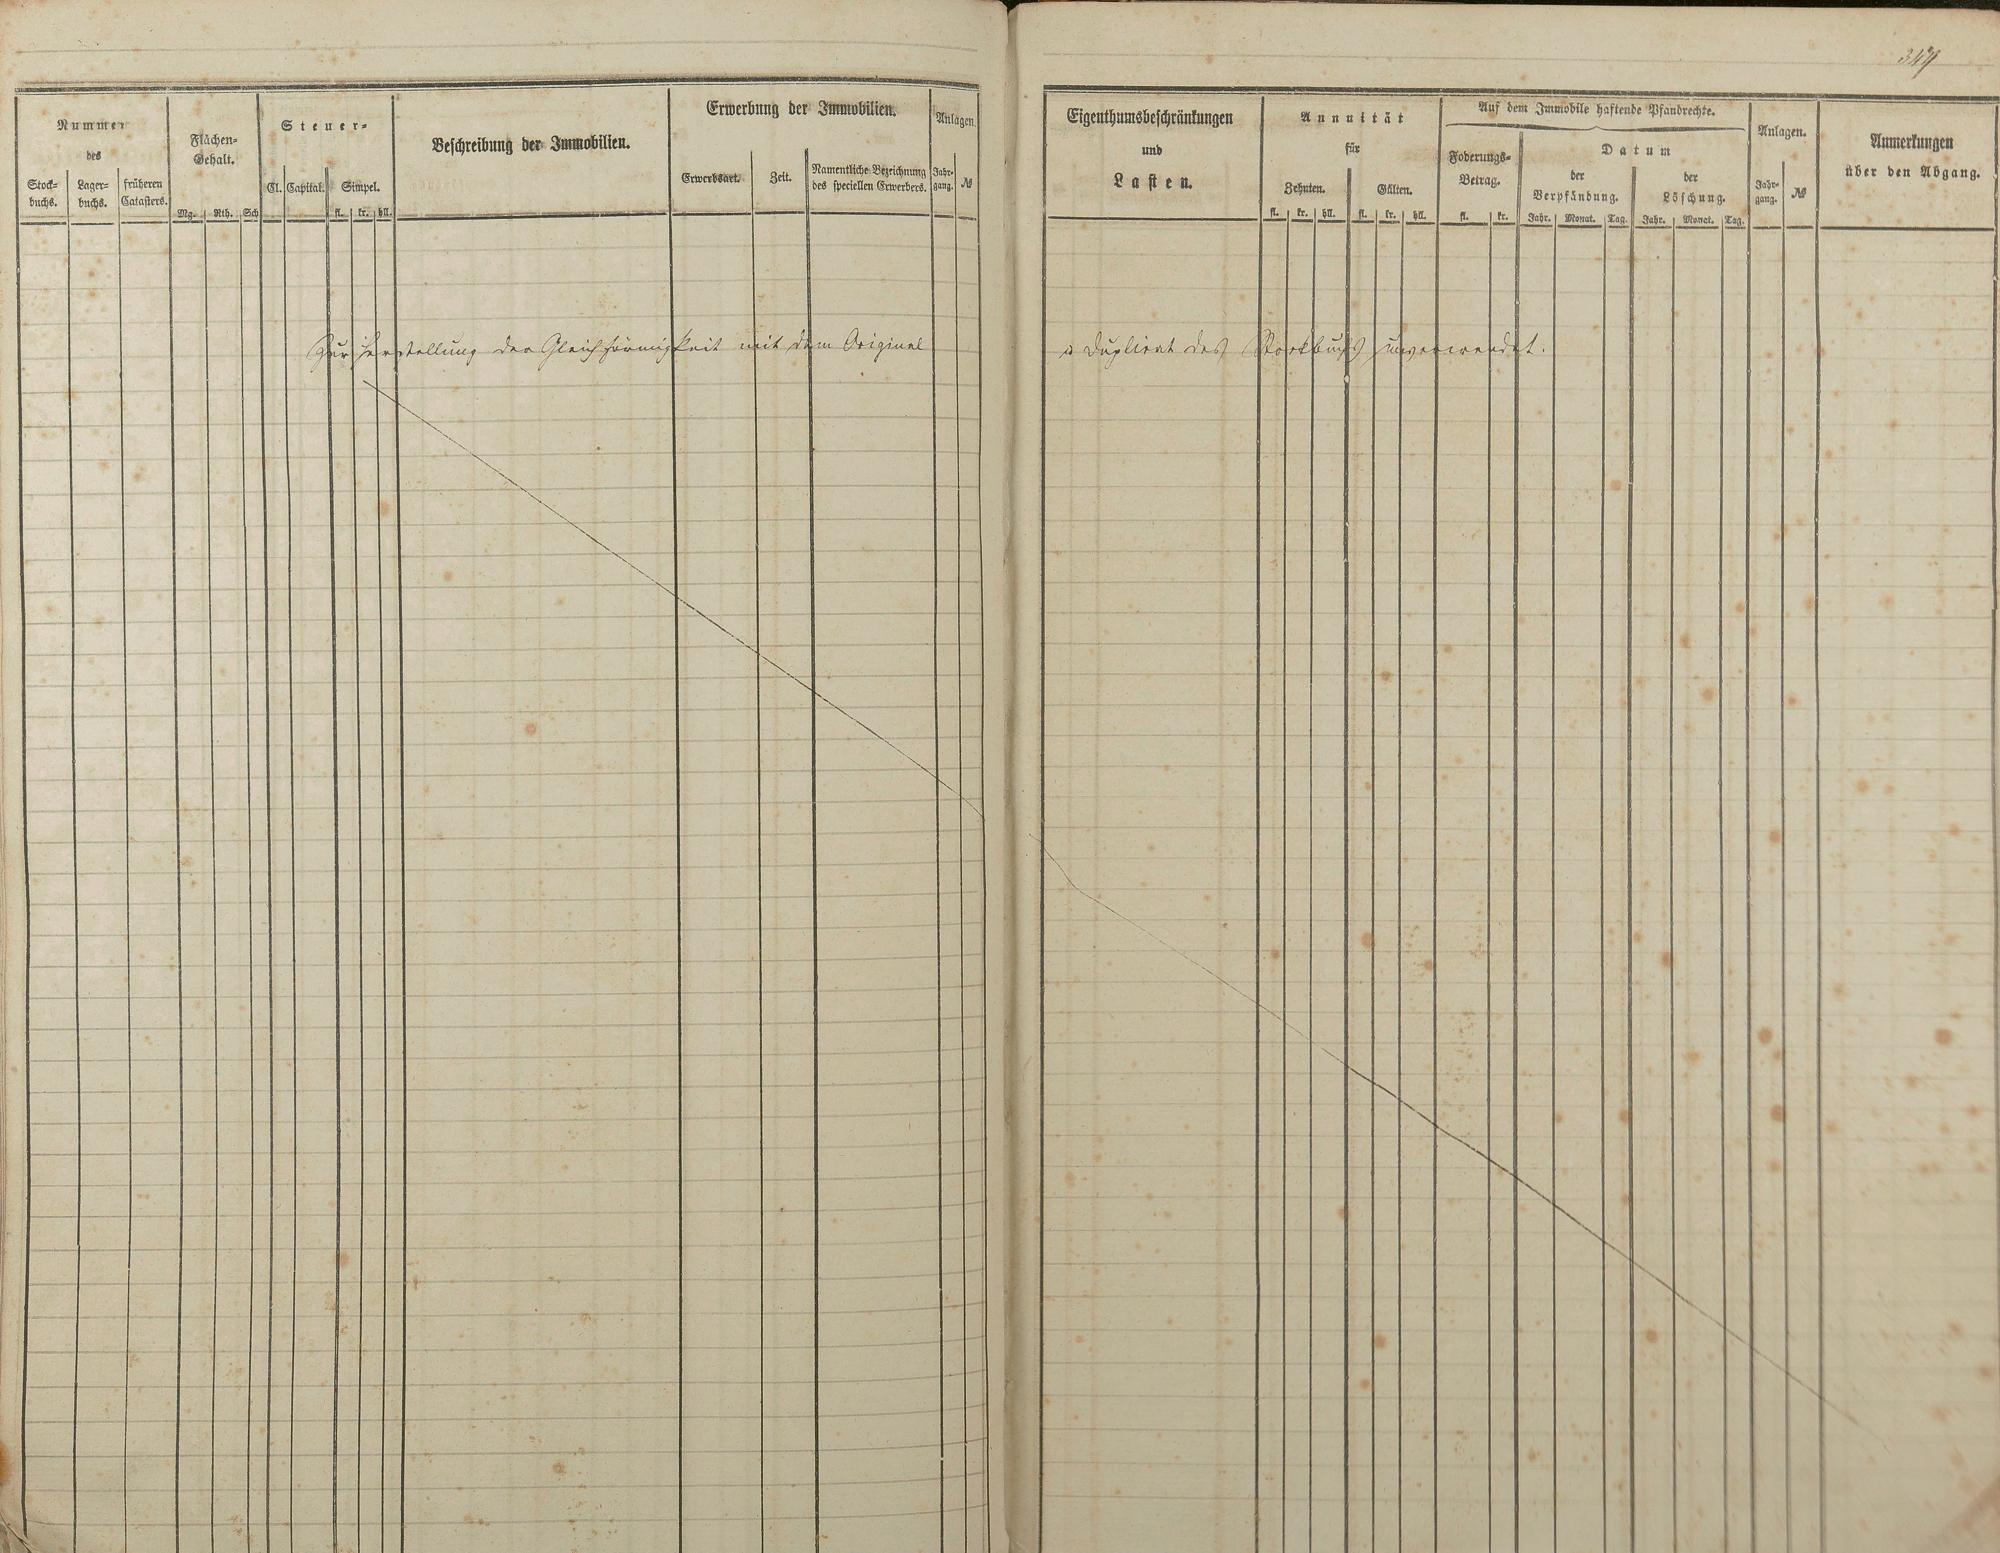 Nummer
des
Stock-
buchs.
Lager-
buchs.
früheren
Catasters.
Flächen-
Gehalt.
Mg. Rth. Sch
Steuer-
Cl. Capital. Simpel.
fl. kr. hll.
Beschreibung der Immobilien.
Erwerbung der Immobilien.
Erwerbsart. Zeit.
Namentliche Bezeichnung
des speciellen Erwerbers.
Anlagen.
Jahr-
gang.
№
Zur Herstellung der Gleichförmigkeit mit dem Original
Eigenthumsbeschränkungen
und
Lasten.
Annuität
für
Zehnten. Gülten.
fl. kr. hll. fl. kr. hll.
Auf dem Immobile haftende Pfandrechte.
Foderungs-
Betrag.
fl. kr.
Datum
der
Verpfändung.
Jahr. Monat. Tag.
der
Löschung.
Jahr. Monat. Tag.
Anlagen.
Jahr-
gang.
№
Anmerkungen
über den Abgang.
Duplicat des Stockbuchs unverwendet.